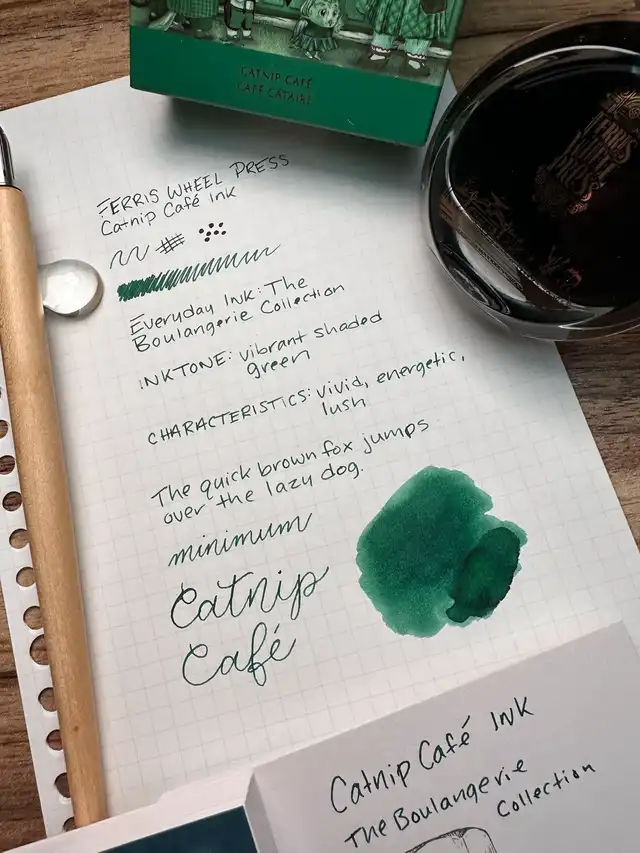 CATNIP CAFÉ
CAFÉ CATAIRE
FERRIS WHEEL PRESS
Catnip Café Ink
Everyday Ink: The
Boulangerie Collection
INKTONE: vibrant shaded
green
CHARACTERISTICS: vivid, energetic,
lush
The quick brown fox jumps
over the lazy dog.
minimum
Catnip
Café
FERRIS
WHEEL
PRESS
Catnip Café Ink
The Boulangerie
Collection